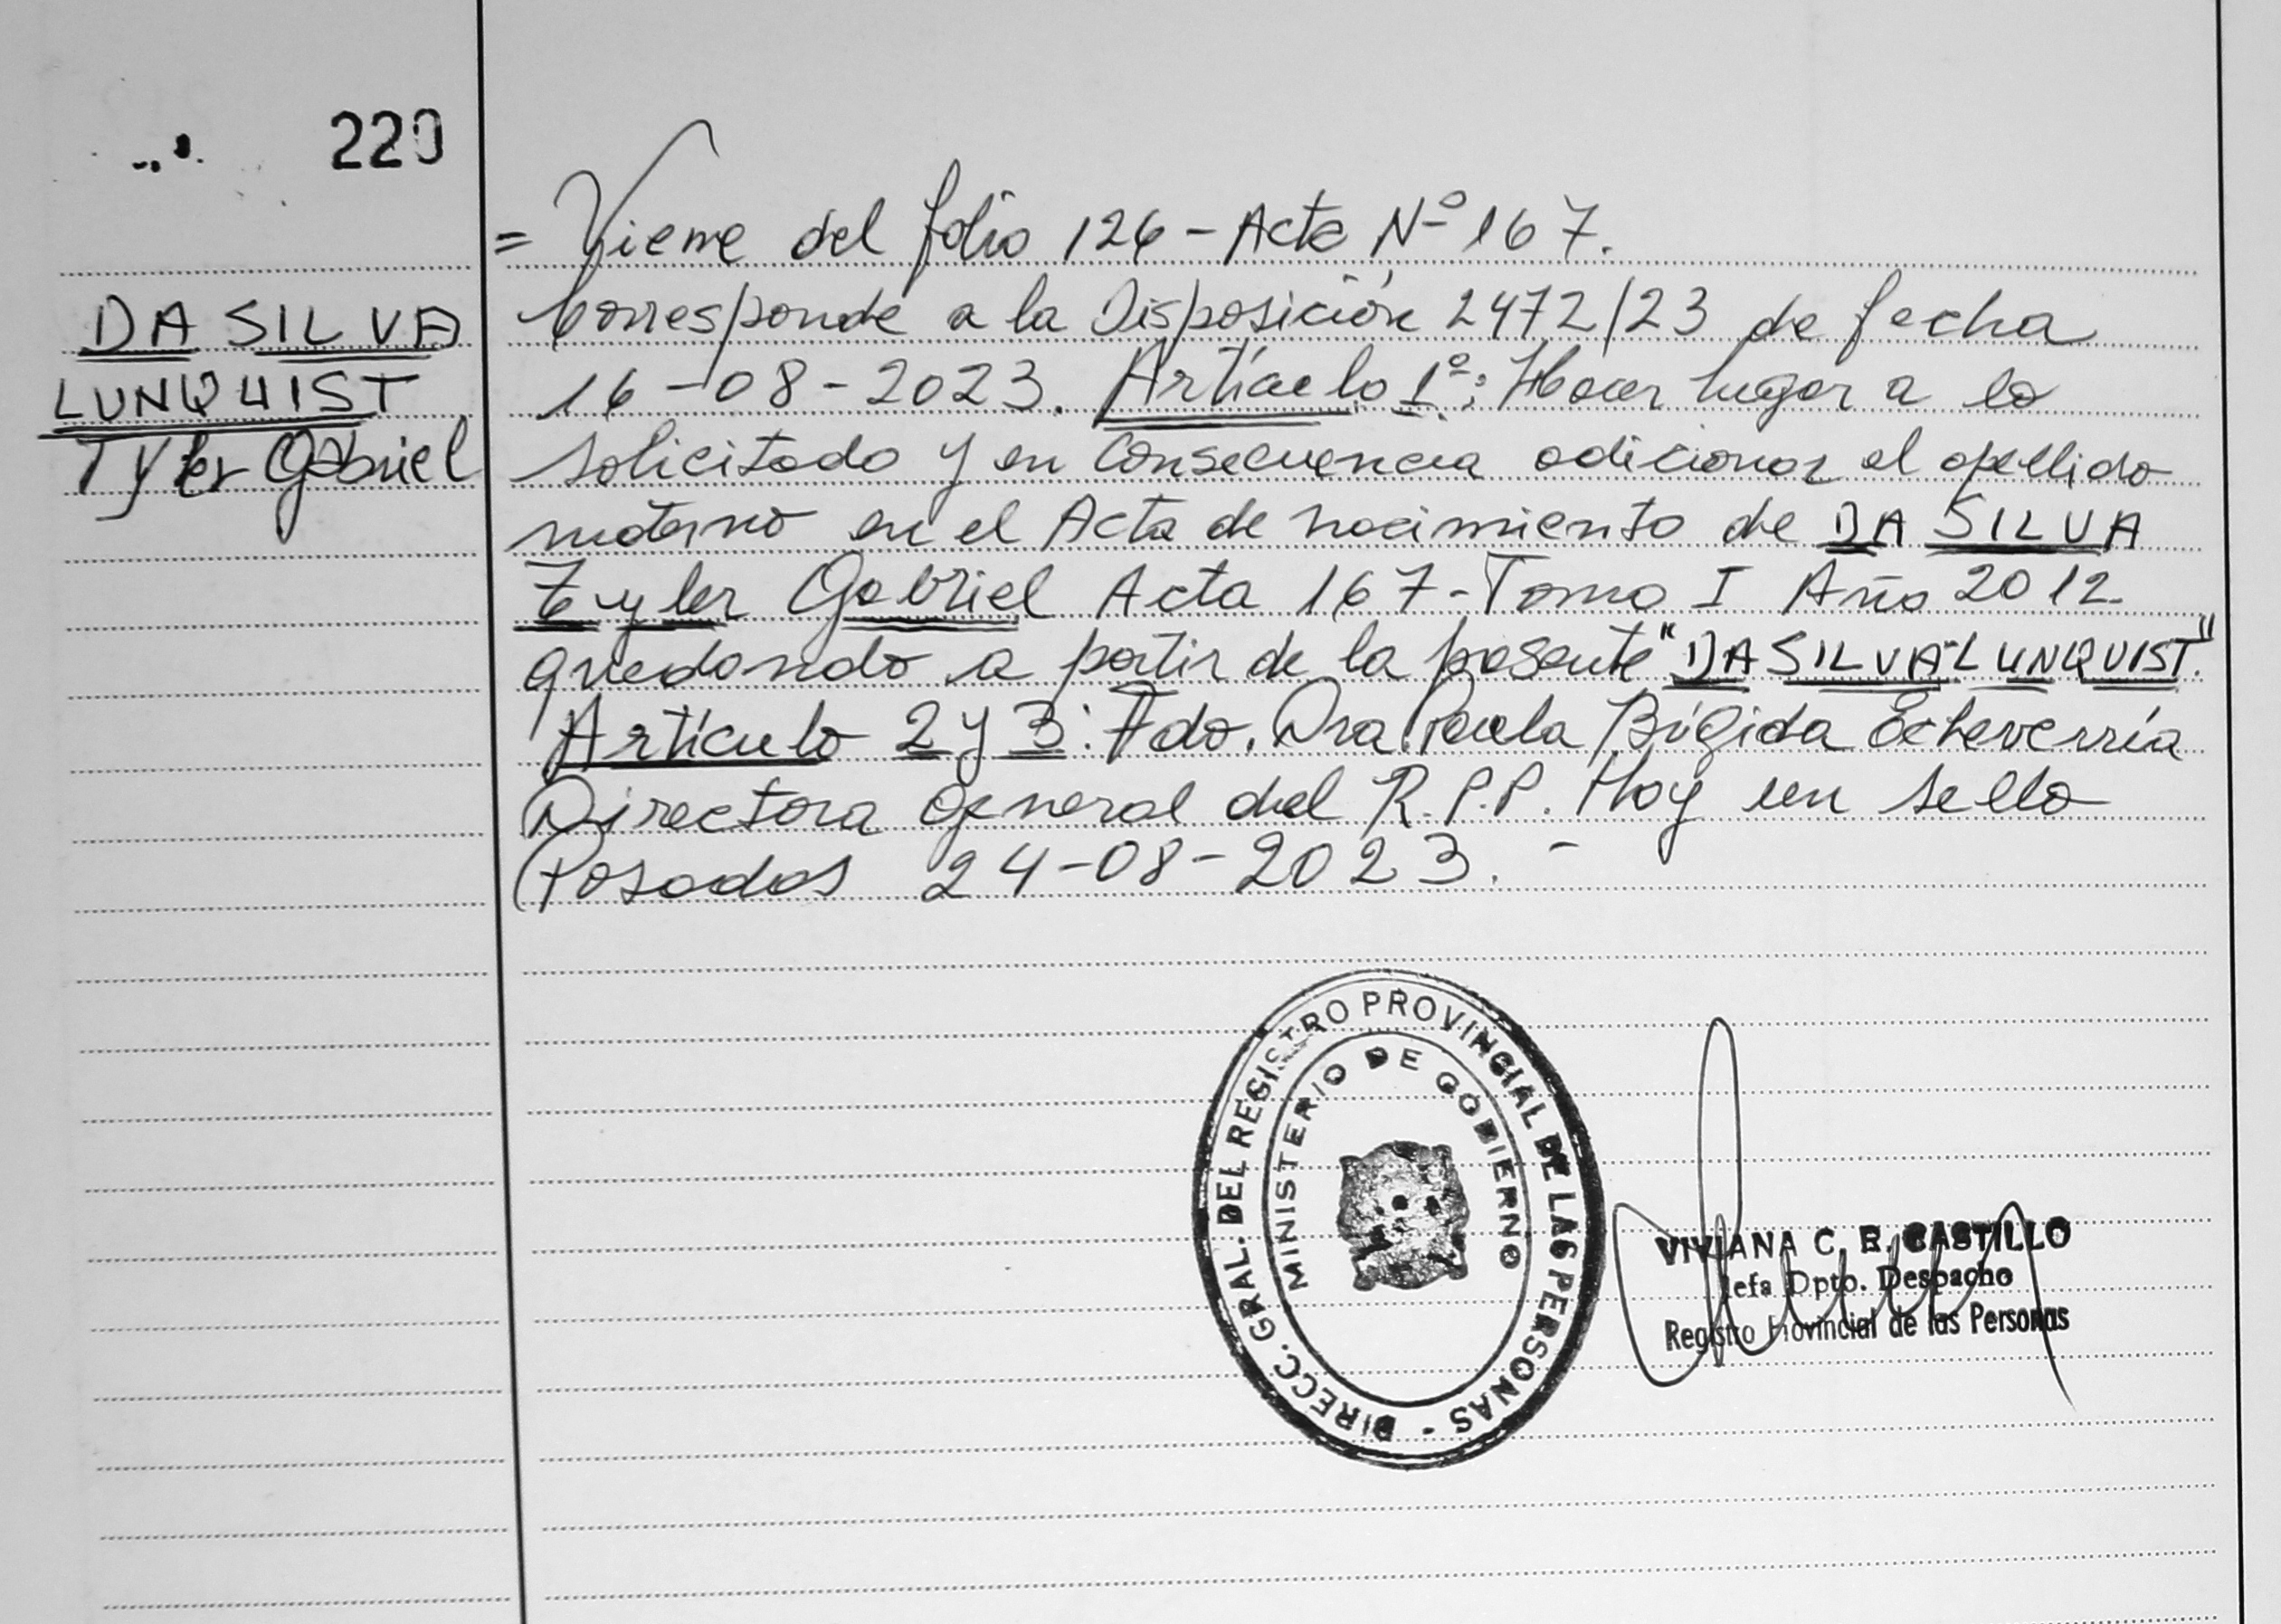 220
DA SILVA
LUNQUIST
Tyler Gabriel
= Viene del folio 126 - Acta Nº 167.
Corresponde a la Disposición 2472/23 de fecha
16-08-2023. Artículo 1º: Hacer lugar a lo
solicitado y en consecuencia adicionar el apellido
materno en el Acta de nacimiento de DA SILVA
Tyler Gabriel Acta 167 - Tomo I Año 2012.
quedando a partir de la presente "DA SILVA LUNQUIST."
Artículo 2 y 3: Fdo. Dra. Paula Brígida Echeverría
Directora General del R.P.P. Hay un sello
Posadas 24-08-2023. -
DIRECC. GRAL. DEL REGISTRO PROVINCIAL DE LAS PERSONAS -
MINISTERIO DE GOBIERNO
VIVIANA C. E. CASTILLO
Jefa Dpto. Despacho
Registro Provincial de las Personas